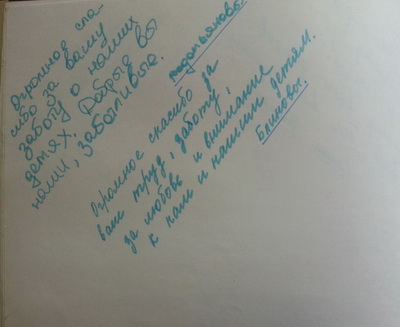 Огромное спа-
сибо за вашу
заботу о наших
детях. Добрые вы
наши, заботливые.
Огромное спасибо за
ваш труд, заботу,
за любовь и внимание
к нам и нашим детям.
Блиновы.